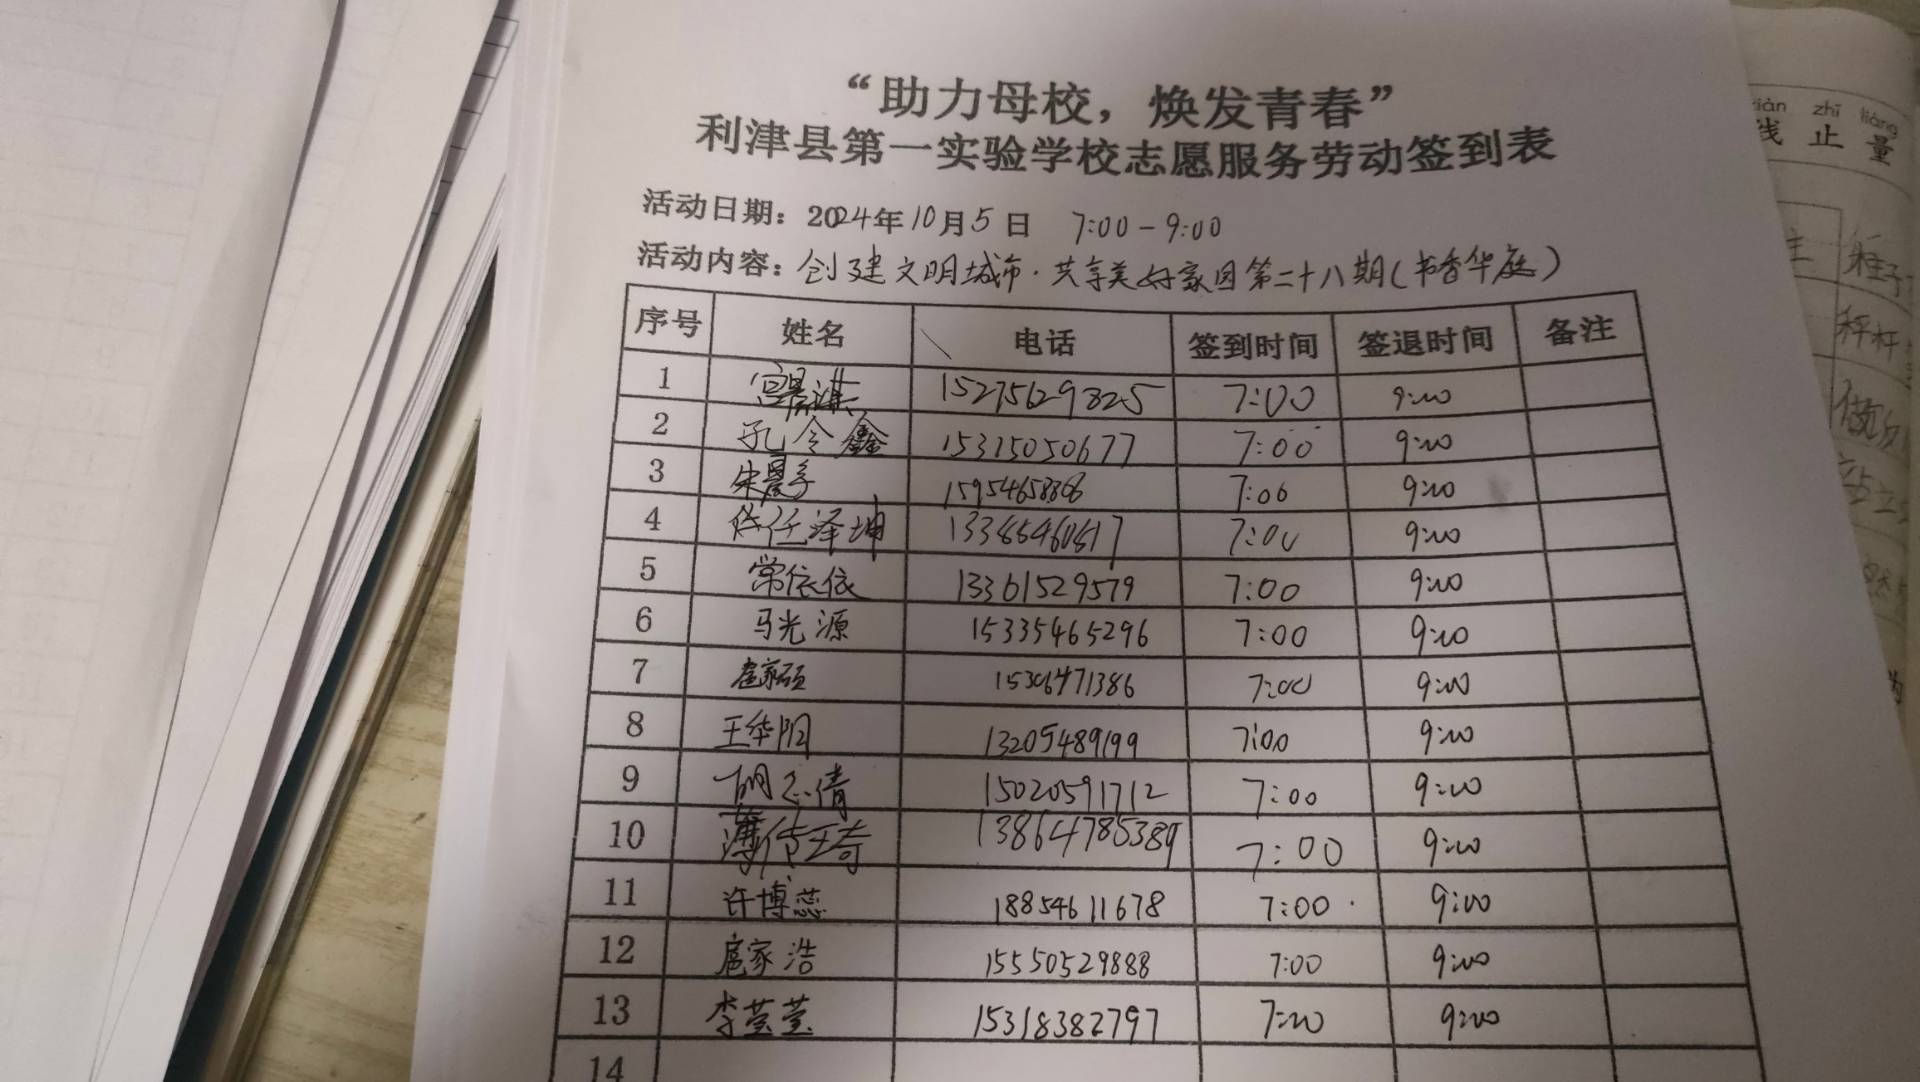 “助力母校，焕发青春”
利津县第一实验学校志愿服务劳动签到表
活动日期：2024年10月5日 7:00-9:00
活动内容：创建文明城市·共享美好家园第二十八期(书香华庭)
序号 姓名 电话 签到时间 签退时间 备注
1 15275629825 7:00 9:00
2 孔令鑫 15315050677 7:00 9:00
3 朱晨 7:00 9:00
4 任泽坤 7:00 9:00
5 常依依 13361529579 7:00 9:00
6 马光源 15335465296 7:00 9:00
7 15306471386 7:00 9:00
8 王华阳 13205489199 7:00 9:00
9 胡志倩 15020591712 7:00 9:00
10 薄传琦 13864785389 7:00 9:00
11 许博蕊 18854611678 7:00 9:00
12 扈家浩 15550529888 7:00 9:00
13 李莹莹 15318382797 7:00 9:00
14
xiàn zhǐ liàng
线 止 量
秤杆